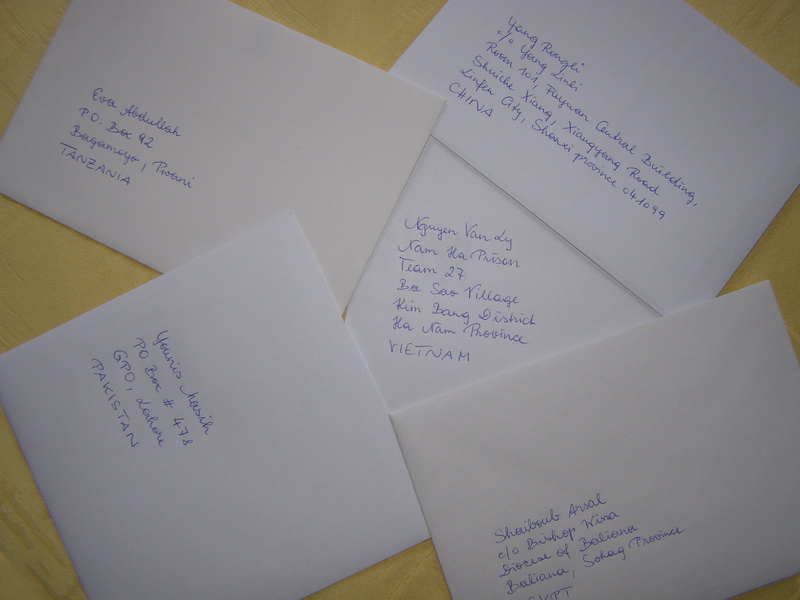 Eva Abdullah
P.O. Box 92
Bagamoyo, Pwani
TANZANIA
Yang Rongli
c/o Yang Linli
Room 101, Fuyuan Central Building,
Shuiche Xiang, Xiangyang Road
Linfen City, Shanxi province 041099
CHINA
Nguyen Van Ly
Nam Ha Prison
Team 27
Ba Sao Village
Kim Bang District
Ha Nam Province
VIETNAM
Younis Masih
PO Box # 478
GPO, Lahore
PAKISTAN
Shaiboub Arsal
c/o Bishop Wisa
Diocese of Baliana
Baliana, Sohag Province
EGYPT